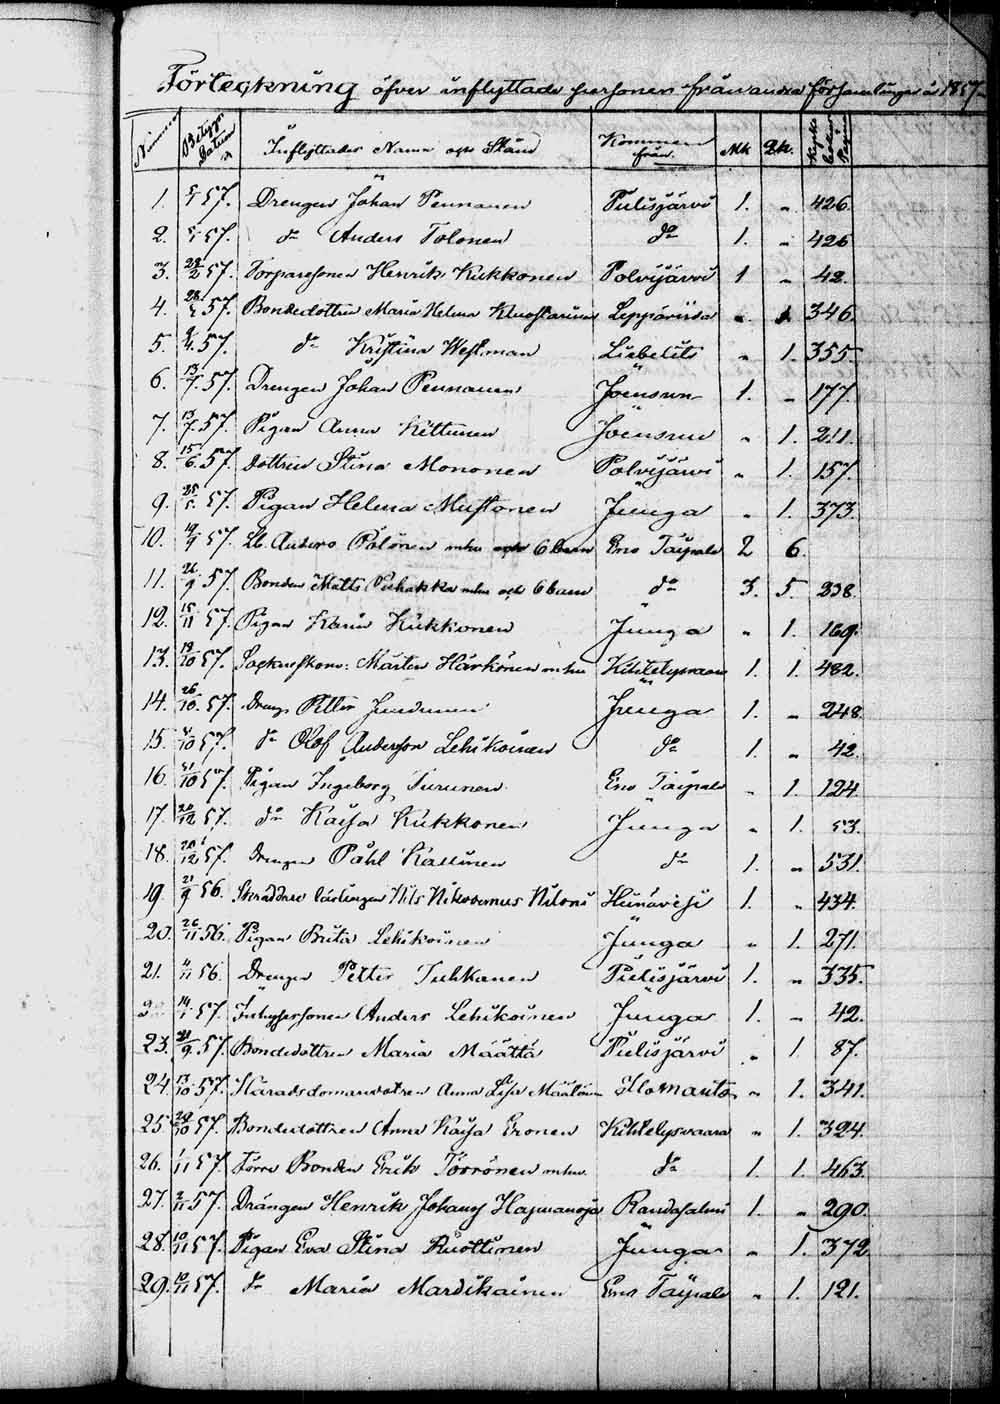 Förteckning öfver inflyttade personer från andra församlingar år 1857
Nummer Betygs Datum Inflyttades Namn och Stånd Kommen från Mk. Qk. Kyrko bokens Pagina
1. 5/1 57. Drengen Johan Pennanen Pielisjärvi 1. " 426.
2. 5/1 57. do Anders Tolonen do 1. " 426
3. 28/2 57. Torparesonen Henrik Kukkonen Polvijärvi 1 " 42.
4. 28/2 57. Bondedottren Maria Helena Leppävirta " 1. 346.
5. 57. do Kristina Westman Libelits " 1. 355.
6. 13/7 57. Drengen Johan Pennanen Joensuu 1. " 177.
7. 13/7 57. Pigan Anna Kettunen Joensuu " 1. 211.
8. 15/6 57. Dottren Stina Mononen Polvijärvi " 1. 157.
9. 25/5 57. Pigan Helena Mustonen Juuga " 1. 373.
10. 19/9 57. Anders Polönen mhu och 6 barn Eno Taipale 2 6.
11. 21/9 57. Bonden Matts Puhakka mhu och 6 barn do 3. 5. 238.
12. 15/11 57. Pigan Karin Kukkonen Juuga " 1. 169.
13. 19/10 57. Sockneskom: Mårten Härkönen mhu Kihtelysvaara 1. 1. 482.
14. 26/10 57. Dreng Petter Juuga 1. " 248.
15. 4/10 57. do Olof Andersson Lehikoinen do 1. " 42.
16. 31/10 57. Pigan Ingeborg Turunen Eno Taipale " 1. 124.
17. 20/12 57. do Kaisa Kukkonen Juuga " 1. 53.
18. 20/12 57. Drengen Påhl Kallinen do 1. " 531.
19. 21/9 56. Skräddare lärlingen Nils Nikodemus 1. " 434.
20. 26/11 56. Pigan Brita Lehikoinen Juuga " 1. 271.
21. 4/11 56. Drengen Petter Tuhkanen Pielisjärvi 1. " 335.
14/1 57. Anders Lehikoinen Juuga 1. " 42.
23. 21/9 57. Bondedottren Maria Määttä Pielisjärvi " 1. 87.
24. 13/10 57. Anna Lisa Ilomants " 1. 341.
25. 20/10 57. Bondedottren Anna Kaisa Eronen Kihtelysvaara " 1. 324.
26. 1/11 57. Förra Bonden Erik Törrönen mhu. do 1. 1. 463.
27. 2/11 57. Drängen Henrik Johans Randasalmi 1. " 290.
28. 10/11 57. Pigan Eva Stina Ruottinen Juuga " 1. 372
29. 10/11 57. do Maria Mardikainen Eno Taipale " 1. 121.